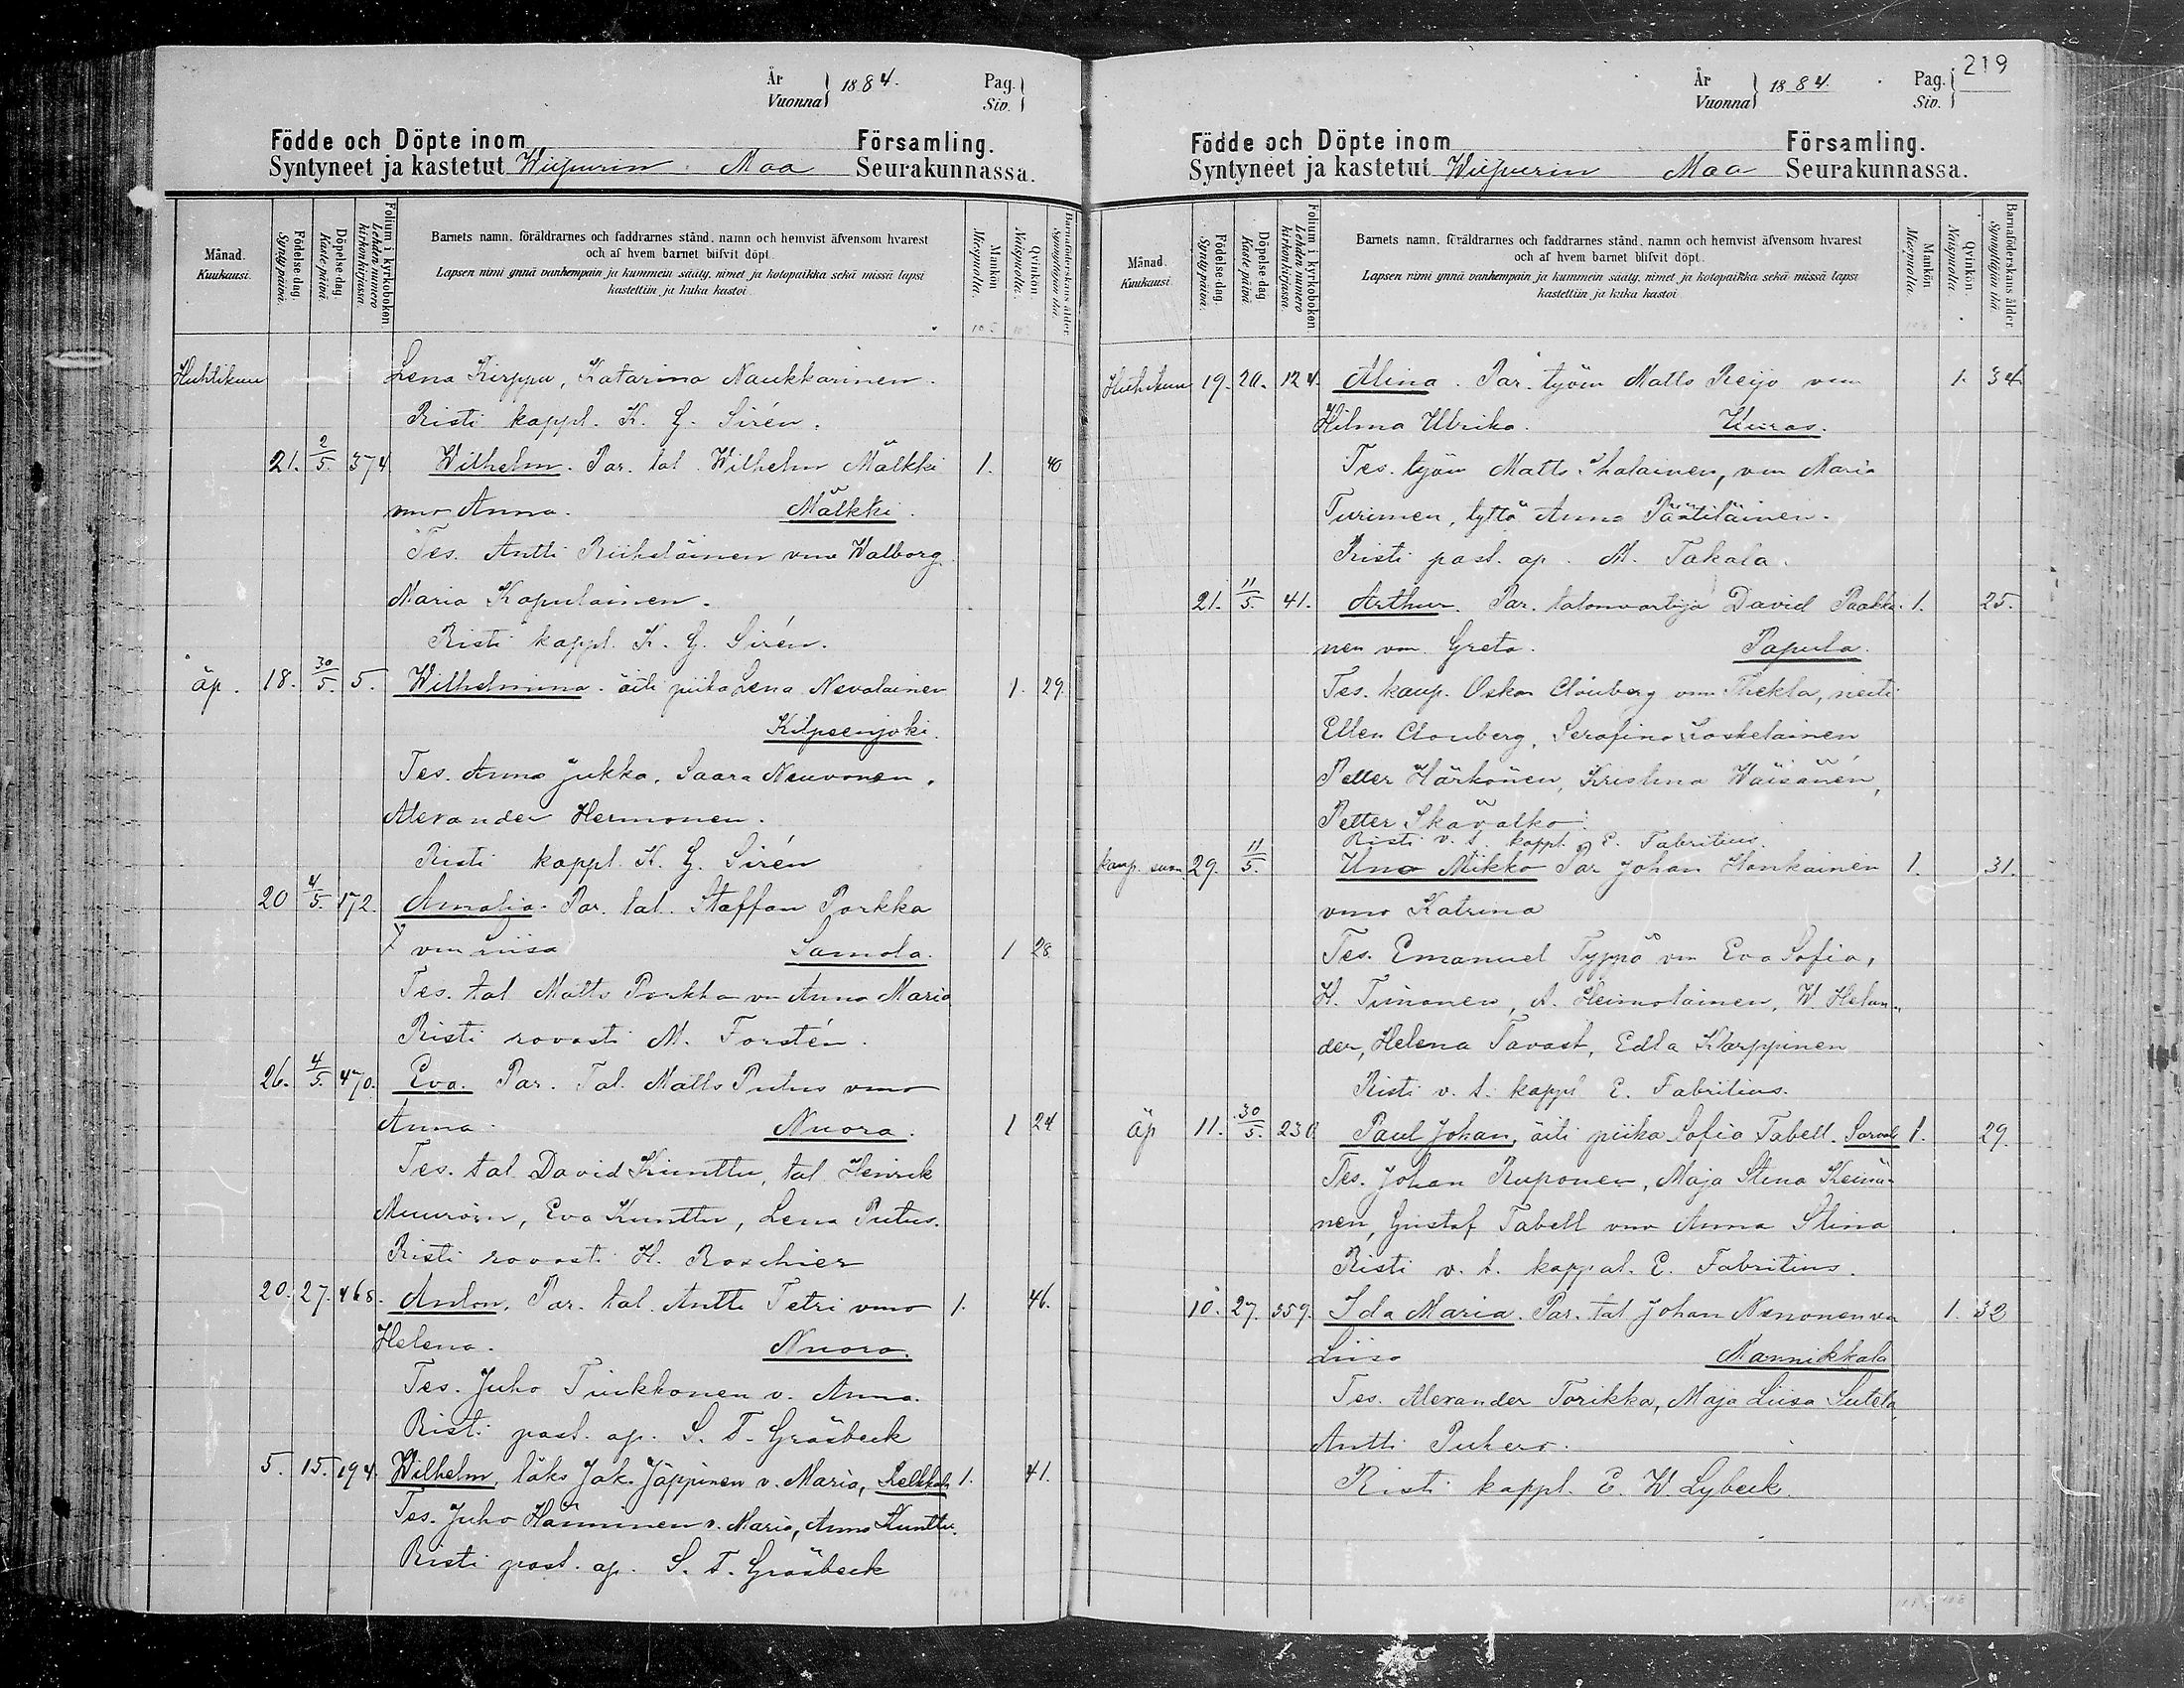 År
Vuonna
1884.
Pag.
Siv.
Födde och Döpte inom Församling.
Syntyneet ja kastetut Wiipurin Maa Seurakunnassa.
Månad.
Kuukausi.
Födelse-dag.
Syntypäivä.
Döpelse-dag
Kastepäivä.
Folium i kyrkoboken.
Lehden numero kirkonkirjassa.
Barnets namn, föräldrarnes och faddrarnes stånd, namn och hemvist äfvensom hvarest
och af hvem barnet blifvit döpt.
Lapsen nimi ynnä vanhempain ja kummein sääty, nimet ja kotopaikka sekä missä lapsi
kastettiin ja kuka kastoi
Mankön
Miespuolia.
Qvinkön
Naispuolia.
Barnaföderskans ålder.
Synnyttäjän ikä.
Huhtikuu Lena Kirppu, Katarina Naukkarinen.
Risti kappl. K. G. Sirén.
21. 2/5. 374 Wilhelm. Par. tal. Wilhelm Mälkki 1. 40
vmo Anna. Mälkki.
Tes. Antti Riiheläinen vmo Walborg
Maria Kapulainen.
Risti kappl. K. G. Sirén.
äp. 18. 30/5. 5. Wilhelmina. äiti piika Lena Nevalainen 1. 29.
Kilpeenjoki.
Tes. Anna Jukka, Saara Neuvonen,
Alexander Hermonen.
Risti kappl. K. G. Sirén
20 4/5. 172. Amalia. Par. tal. Staffan Porkka
vm Liisa Samola. 1 28
Tes. tal Matts Porkka vm Anna Maria
Risti rovasti M. Forstén.
26. 4/5. 470. Eva. Par. Tal. Matts Putus vmo
Anna. Nuora. 1 24
Tes. tal David Kunttu, tal Henrik
Muurain, Eva Kunttu, Lena Putus.
Risti rovasti H. Roschier
20. 27. 468. Anton. Par. tal. Antti Tetri vmo 1. 46.
Helena. Nuora.
Tes. Juho Tuukkonen v. Anna.
Risti past. ap. S. T. Gräsbeck
5. 15. 194. Wilhelm. läks Jak. Jäppinen v. Maria, Kelkkala 1. 41.
Tes. Juho Hänninen v. Maria, Anna Kunttu.
Risti past. ap. S. T. Gräsbeck
219
År
Vuonna
1884.
Pag.
Siv.
Födde och Döpte inom Församling.
Syntyneet ja kastetut Wiipurin Maa Seurakunnassa.
Månad.
Kuukausi.
Födelse-dag.
Syntypäivä.
Döpelse-dag
Kastepäivä.
Folium i kyrkoboken.
Lehden numero kirkonkirjassa.
Barnets namn, föräldrarnes och faddrarnes stånd, namn och hemvist äfvensom hvarest
och af hvem barnet blifvit döpt.
Lapsen nimi ynnä vanhempain ja kummein sääty, nimet ja kotopaikka sekä missä lapsi
kastettiin ja kuka kastoi
Mankön
Miespuolia.
Qvinkön.
Naispuolia.
Barnaföderskans ålder.
Synnyttäjän ikä.
Huhtikuu 19. 20. 124. Alina. Par. työm Matts Reijo vm 1. 34
Hilma Ulrika. Kiiras.
Tes. työm Matts Ihalainen, vm Maria
Turinen, tyttö Anna Päätiläinen.
Risti past. ap. M. Takala.
21. 11/5. 41. Arthur. Par. talonvartija David Paakki- 1. 25.
nen vm Greta. Papula.
Tes. kaup. Oskar Clouberg vm Thekla, neiti
Ellen Clouberg, Serafina Laskelainen
Petter Härkönen, Kristina Wäisänen,
Petter Skavalko.
Risti v. t. kappl. E. Fabritius.
kaup. seur 29. 11/5. Uno Mikko Par Johan Honkainen 1. 31.
vmo Katrina
Tes. Emanuel Typpö vm Eva Sofia,
H. Timonen, A. Heimolainen, W. Helan-
der, Helena Tavast, Edla Karppinen
Risti v. t. kappl E. Fabritius.
äp 11. 30/5. 230 Paul Johan, äiti piika Sofia Tabell. Sorvali 1. 29.
Tes. Johan Ruponen, Maja Stina Keinä-
nen, Gustaf Tabell vmo Anna Stina
Risti v. t. kappal. E. Fabritius.
10. 27. 359. Ida Maria. Par. tal Johan Nenonen vm 1. 32
Liisa Mannikkala
Tes. Alexander Torikka, Maja Liisa Sutela,
Antti Puhero.
Risti kappl. E. W. Lybeck.